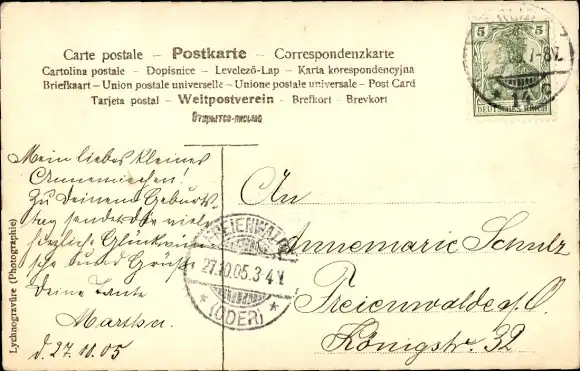 Carte postale – Postkarte – Correspondenzkarte
Cartolina postale – Dopisnice – Levelező-Lap – Karta korespondencyjna
Briefkaart – Union postale universelle – Unione postale universale – Post Card
Tarjeta postal – Weltpostverein – Brefkort – Brevkort
Открытое письмо
5 5
DEUTSCHES REICH
7-8V.
* 14 c
Mein liebes kleines
Annemiechen!
Zu Deinem Geburts
tag sendet dir viele
herzliche Glückwün
sche und Grüße
Deine Tante
Martha.
d. 27.10.05
FREIENWALDE
27.10.05.3-4V.
* (ODER) *
An
Annemarie Schulz
Freienwalde a. O.
Königstr. 32
Lychnogravüre (Photographie)